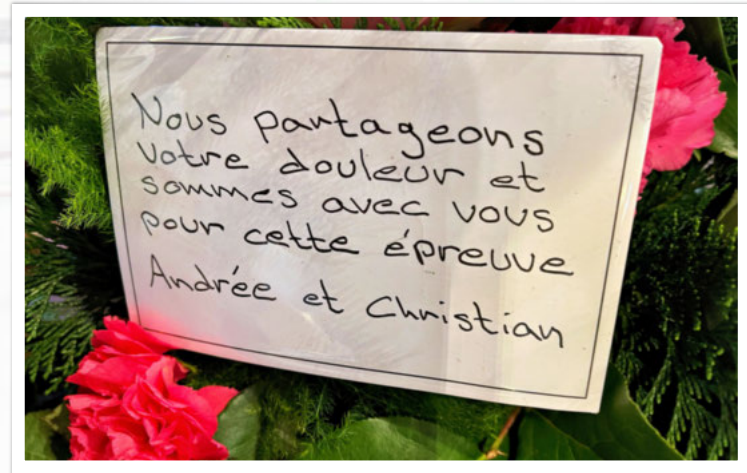 Nous partageons
votre douleur et
sommes avec vous
pour cette épreuve
Andrée et Christian